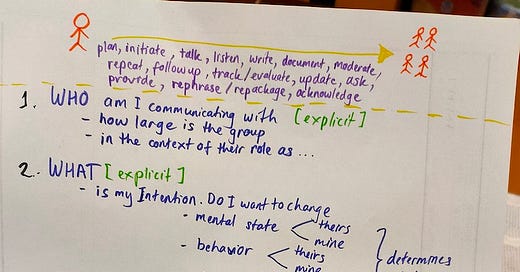 plan, initiate, talk, listen, write, document, moderate/
repeat, followup, track/evaluate, update, ask,
provide, rephrase/repackage, acknowledge
1. WHO am I communicating with [explicit]
- how large is the group
- in the context of their role as ...
2. WHAT [explicit]
- is my Intention. Do I want to change
- mental state < theirs
mine
- behavior < theirs
mine
} determines